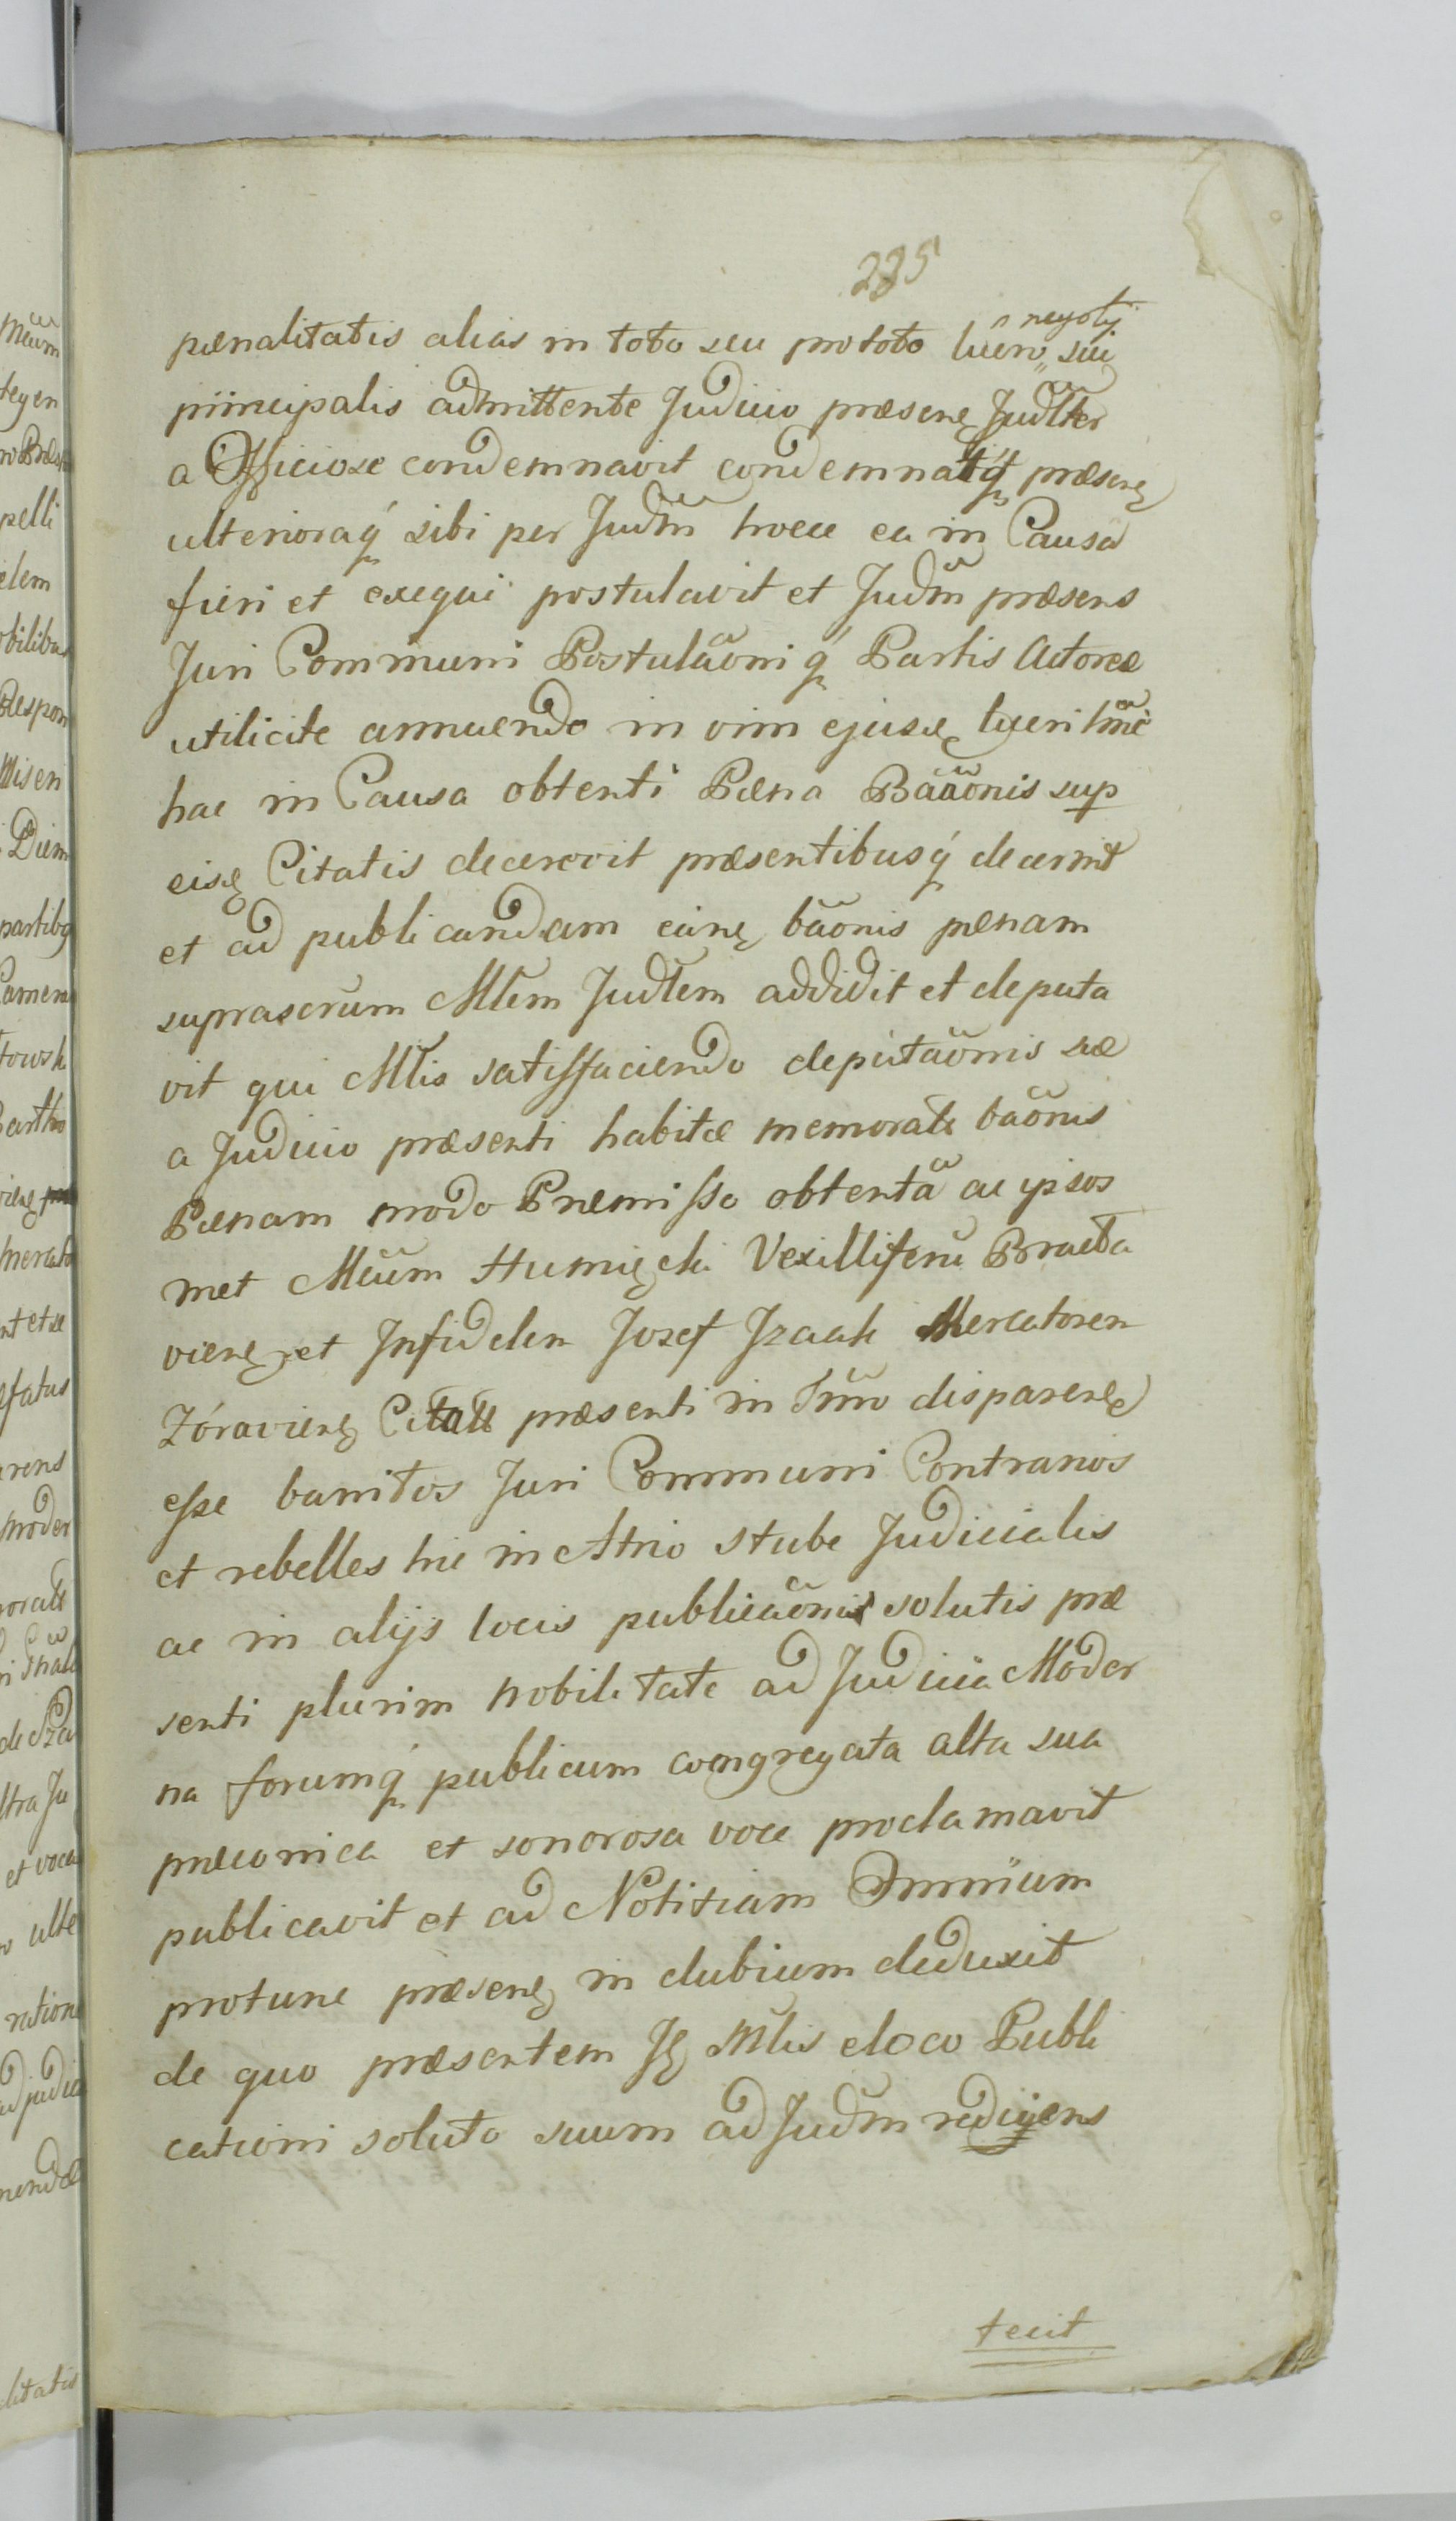 235
pœnalitatis alias in toto seu pro toto lueri negotij sui
principalis admittente Judicio præsenę Judltter
a Officiose condemnavit condemnatq́ præsenę
ulterioraq́ sibi per Judm̃ hocce ea in Causa
fieri et exequi postulavit et Judm̃ præsens
Juri Communi Postulaõni q́ Partis Actoreæ
utilicite annuendo in vim ejusę lueri
hac in Causa obtenti Pæna Baãonis sup
eisę Citatis decrevit præsentibusq́ decernit
et ad publicandam eanę bãonis pænam
suprascrum Mlem Judlem addidit et deputa
vit qui Mlis satisfaciendo deputaõnis suæ
a Judicio præsenti habitæ memoratæ bãonis
Pænam modo Præmisso obtentã ac ipsos
met Mcum Humięcki Vexilliferũ Bracła
vienę et Infidelem Josef Jzaak Mercatorem
Zóravienę Citatt præsenti in Tmno disparenę
esse banitos Juri Communi Contrarios
et rebelles hic in Atrio Stubæ Judicialis
ac in alijs locis publicaõnis solutis præ
senti plurim nobilitate ad Judicia Moder
na forumq́ publicum congregata alta sua
præconica et sonorosa voce proclamavit
publicavit et ad Notitiam Omnium
protunc præsenę in dubium deduxit
de quo præsentem Ję Mlis eloco Publi
cationi soluto suum ad Judm̃ redigens
fecit